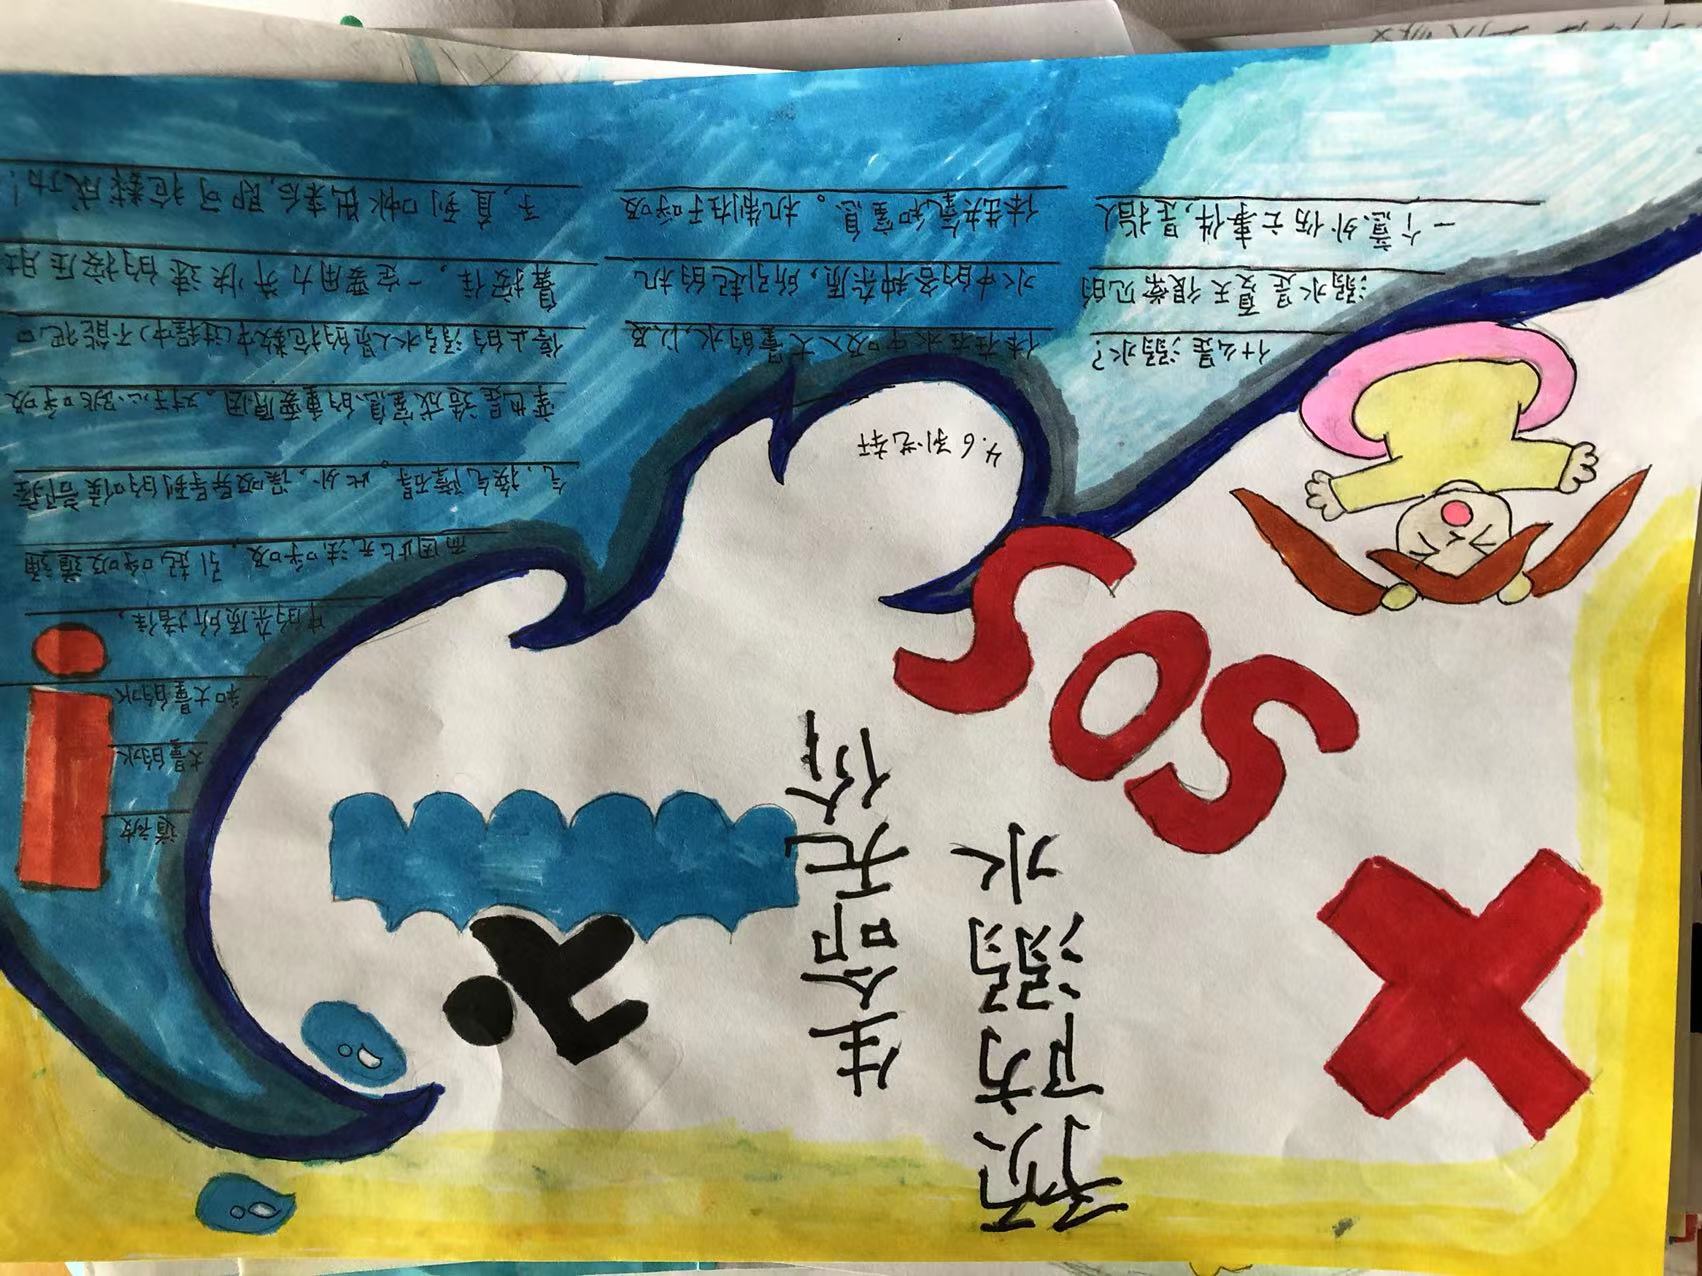 预防溺水
生命无价
!
SOS
4.6 孙艺轩
什么是溺水?
溺水是夏天很常见的
一个意外伤亡事件,是指人
体在在水中吸入大量的水,以及
水中的各种杂质,所引起的机
体缺氧和窒息。机制在于呼吸
道被
大量的水
和大量的水
中的杂质所堵住,
而因此无法呼吸,引起呼吸道通
气,换气障碍。此外,误吸异导到的喉部痉
挛也是造成窒息的重要原因。对于心跳呼吸
停止的溺水人员的抢救中(过程中)不能把口
鼻按住,一定要用力并快速的按压肚
子,直到口水出来后,即可抢救成功!